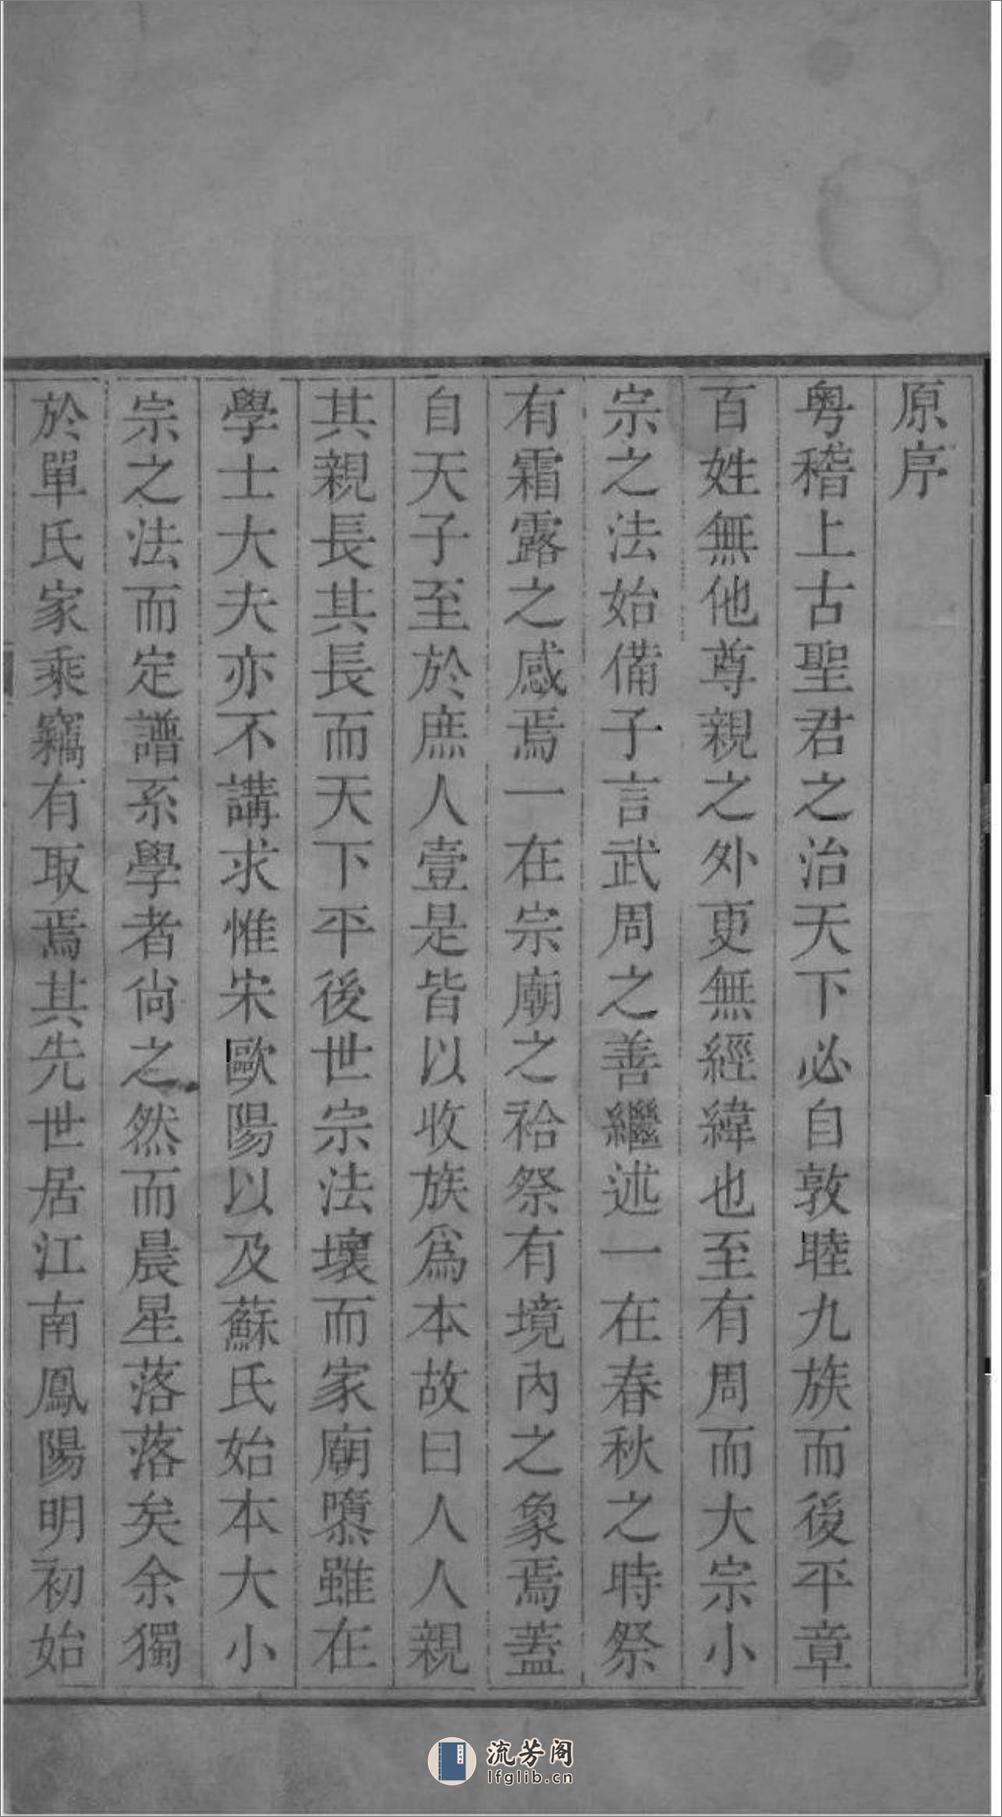 原序
粤稽上古聖君之治天下必自敦睦九族而後平章
百姓無他尊親之外更無經緯也至有周而大宗小
宗之法始備子言武周之善繼述一在春秋之時祭
有霜露之感焉一在宗廟之祫祭有境內之象焉蓋
自天子至於庶人壹是皆以收族爲本故曰人人親
其親長其長而天下平後世宗法壞而家廟隳雖在
學士大夫亦不講求惟宋歐陽以及蘇氏始本大小
宗之法而定譜系學者尙之然而晨星落落矣余獨
於單氏家乘竊有取焉其先世居江南鳳陽明初始
流芳阁
lfglib.cn